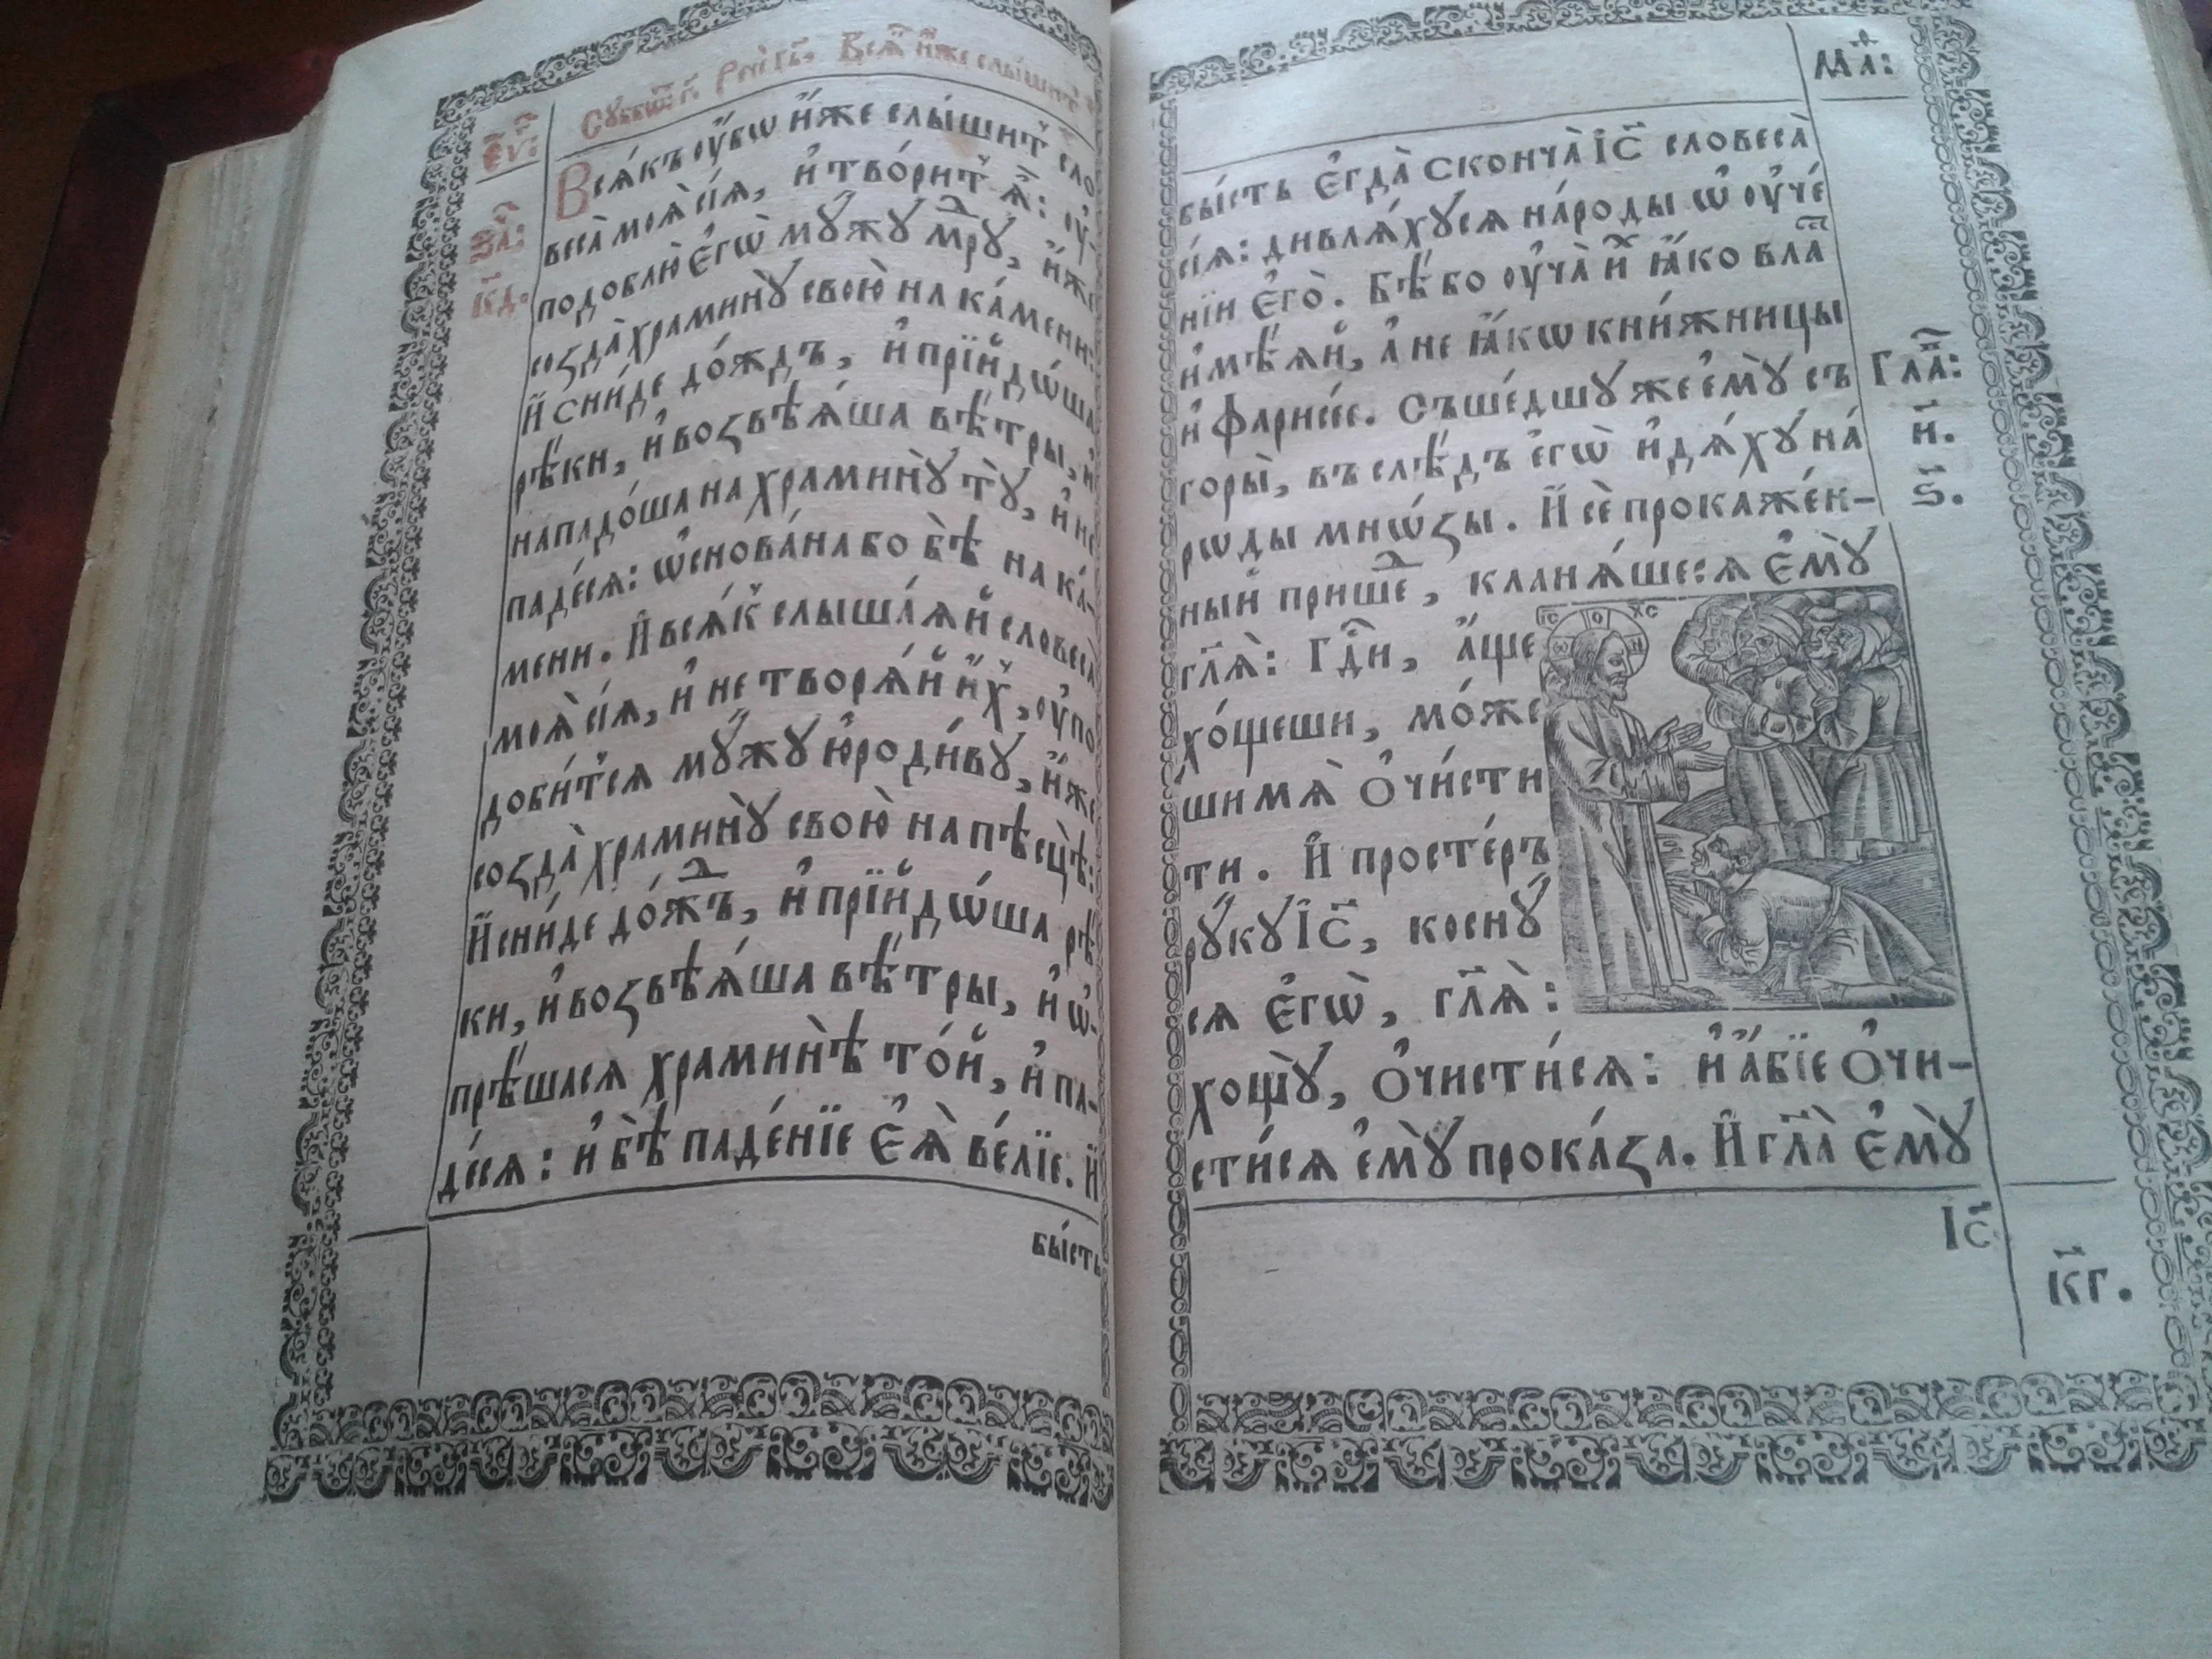 Сꙋббѡ҃т г҃. Рци гь҃. Всѧ҃ и҆́же слы́шит
Є҃ѵ:
За҃:
к҃д.
Всѧ́къ ᲂу҆́бѡ и҆́же слы́шит сло
веса̀ моѧ̀ сїѧ̀, и҆ тво́рит ѧ҆̀: ᲂу҆-
подоблю̀ є҆гѡ̀ мꙋ́жꙋ мⷣрꙋ, и҆́же
созда̀ храминꙋ̀ свою̀ на ка́мени:
И҆ сни́де до́ждъ, и҆ прїидѡ́ша
рѣ́ки, и҆ возвѣѧ́ша вѣ́тры, и҆
нападо́ша на храминꙋ̀ тꙋ̀, и҆ не
паде́сѧ: ѡ҆снова́на бо бѣ̀ на ка́-
мени. И҆ всѧ́к слышаѧ́й словеса̀
моѧ̀ сїѧ̀, и҆ не творѧ́й и҆́х, ᲂу҆по
доби́тсѧ мꙋ́жꙋ ю҆роди́вꙋ, и҆́же
созда̀ храминꙋ̀ свою̀ на пѣсцѣ̀:
И҆ сни́де до́жⷣъ, и҆ прїидѡ́ша рѣ́
ки, и҆ возвѣѧ́ша вѣ́тры, и҆ ѡ҆-
прѣ́шасѧ храминѣ̀ то́й, и҆ па-
де́сѧ: и҆ бѣ̀ паде́нїе є҆ѧ̀ ве́лїе. И҆
бы́сть
Мⷴа:
бы́сть є҆гда̀ сконча̀ І҆с҃ словеса̀
сїѧ̀: дивлѧ́хꙋсѧ на́роды ѡ҆ ᲂу҆че́
нїи є҆гѡ̀. Бѣ́ бо ᲂу҆ча̀ и҆́х ꙗ҆́ко влаⷭ
и҆мѣ́ѧй, а҆ не ꙗ҆́кѡ кни́жницы
и҆ фарисе́е. Съше́дшꙋ же є҆мꙋ̀ съ
Гла҃:
и҃.
горы̀, въ слѣ́дъ є҆гѡ̀ и҆дѧ́хꙋ на́
рѡды мнѡ́зы. И҆ сѐ прокаже́н-
ѕ҃.
ный прише́ⷣ, кланѧ́шесѧ є҆мꙋ̀
гл҃ѧ̀: Гдⷭ҇и, а҆́ще
хо́щеши, мо́же
ши мѧ̀ ѻ҆чи́сти
ти. И҆ просте́ръ
рꙋ́кꙋ І҆с҃, коснꙋ́
сѧ є҆гѡ̀, гл҃ѧ̀:
І҃С О ХС
Ѡ Н
хощꙋ̀, ѻ҆чисти́сѧ: и҆ а҆́бїе ѻ҆чи-
сти́сѧ є҆мꙋ̀ прока́за. И҆ гл҃а̀ є҆мꙋ̀
І҆с҃
к҃г.